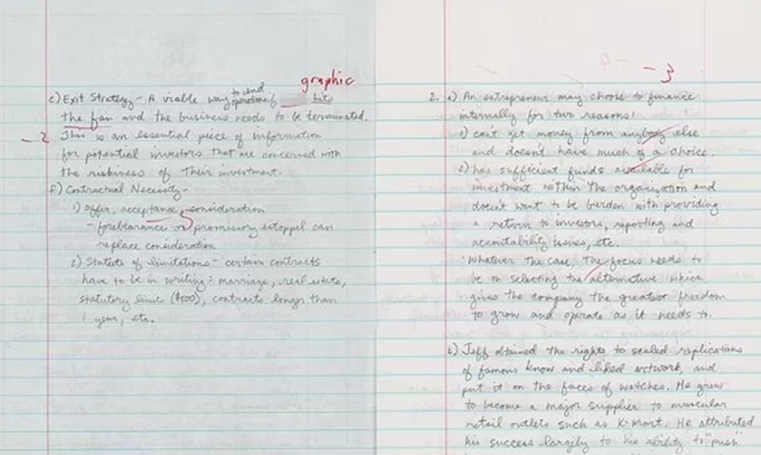 graphic
c) Exit Strategy - A viable way to end operations if hits
the fan and the business needs to be terminated.
- 2 This is an essential piece of information
for potential investors that are concerned with
the riskiness of their investment.
f) Contractual Necessity -
1) offer, acceptance, consideration
- forebearance or promissory estoppel can
replace consideration
2) Statets of limitations - certain contracts
have to be in writing: marriage, real estate,
statutory limits ($500), contracts longer than
1 year, etc.
- 3
2. a) An entrepreneur may choose to finance
internally for two reasons:
1) can't get money from anybody else
and doesn't have much of a choice.
2) has sufficient funds available for
investment within the organization and
doesn't want to be burden with providing
a return to investors, reporting and
accountability issues, etc.
Whatever the case, the focus needs to
be on selecting the alternative which
gives the company the greatest freedom
to grow and operate as it needs to.
b) Jeff obtained the rights to sealed replications
of famous know and liked artwork, and
put it on the faces of watches. He grew
to become a major supplier to
retail outlets such as K-Mart. He attributed
his success largely to his ability to "push"